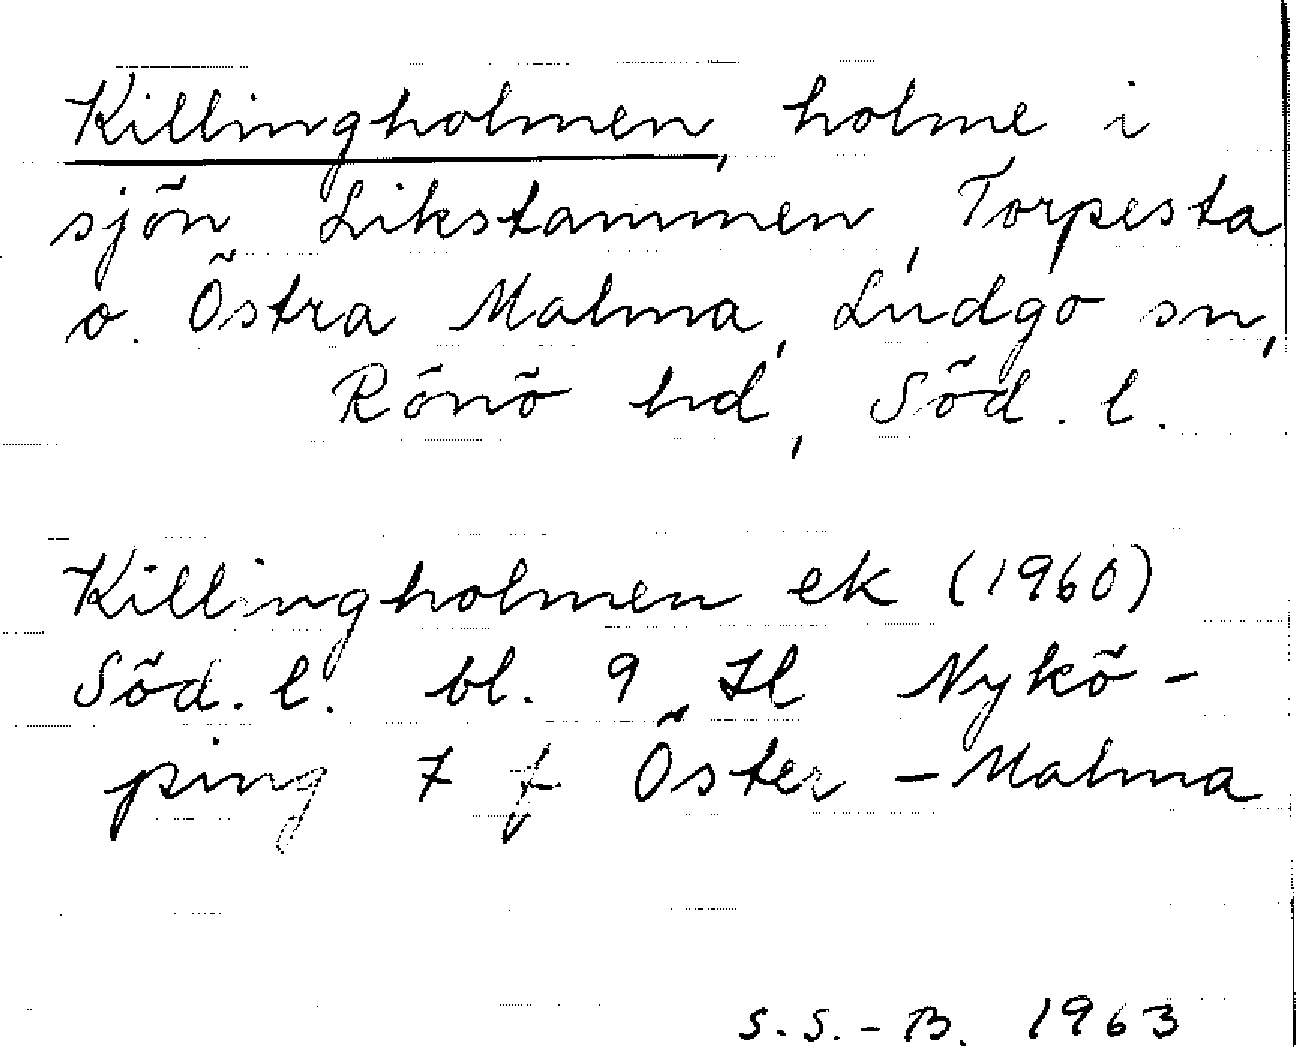 Killingholmen, holme i
sjön Likstammen, Torpesta
o. Östra Malma, Ludgo sn,
Rönö hd, Söd. l.
Killingholmen ek (1960)
Söd. l. bl. 9 Il Nykö-
ping 7 f Öster-Malma
S.S.-B. 1963